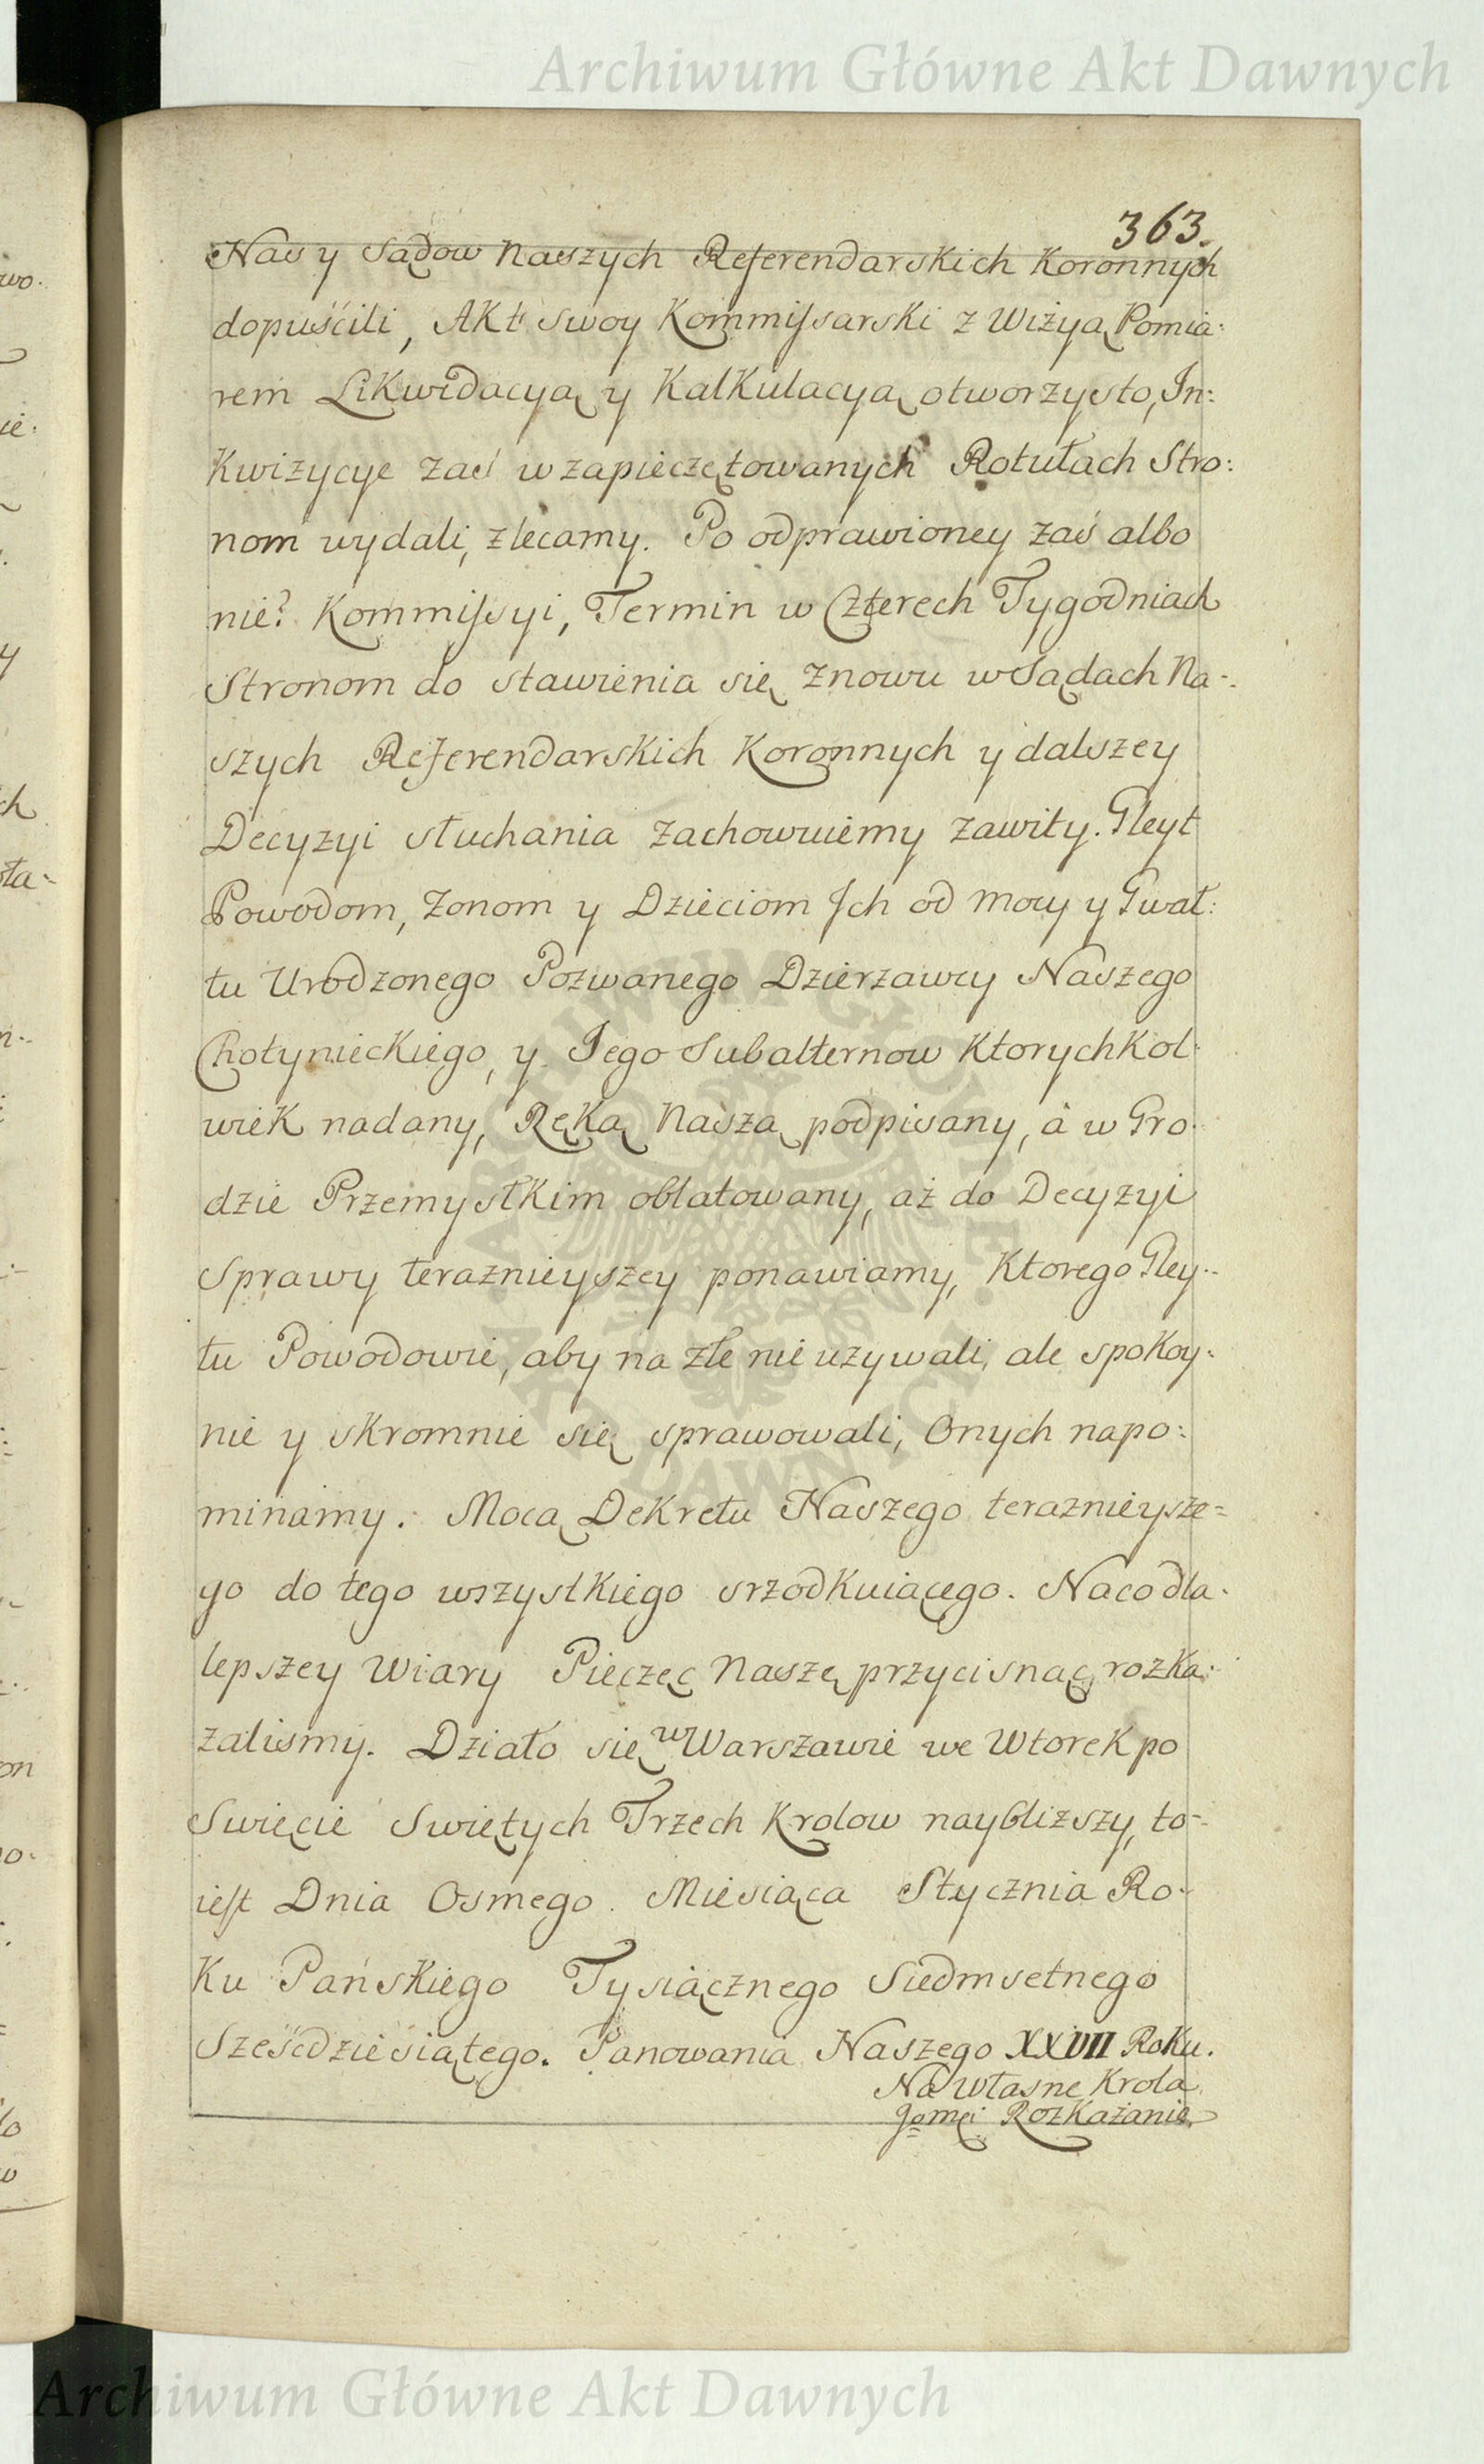 Archiwum Główne Akt Dawnych
363.
Nas y Sądow Naszych Referendarskich Koronnych
dopuścili, Akt swoy Kommissarski z Wizyą Pomia:
rem Likwidacyą y Kalkulacyą otworzysto, In:
kwizycye zaś w zapieczętowanych Rotułach Stro:
nom wydali, zlecamy. Po odprawioney zaś albo
nie? Kommissyi, Termin w Czterech Tygodniach
Stronom do stawienia się znowu w Sądach Na-
szych Referendarskich Koronnych y dalszey
Decyzyi słuchania zachowuiemy zawity. Gleyt
Powodom, Zonom y Dzieciom Ich od mocy y Gwał:
tu Urodzonego Pozwanego Dzierzawcy Naszego
Chotynieckiego, y Jego Subalternow Ktorychkol-
wiek nadany, Ręką Naszą podpisany, á w Gro-
dzie Przemyslkim oblatowany, aż do Decyzyi
Sprawy teraznieyszey ponawiamy, Ktorego Gley-
tu Powodowie, aby na złe nie uzywali, ale spokoy-
nie y skromnie się sprawowali, Onych napo:
minamy. Mocą Dekretu Naszego teraznieysze=
go do tego wszystkiego srzodkuiącego. Na co dla-
lepszey Wiary Pieczęc Naszę przycisnąc rozka-
zalismy. Działo się w Warszawie we Wtorek po
Swięcie Swiętych Trzech Krolow naybliższy, to-
iest Dnia Osmego. Miesiąca Stycznia Ro-
ku Pańskiego Tysiącznego Siedmsetnego
Sześćdziesiątego. Panowania Naszego XXVII Roku.
Na własne Krola
Jgomci Rozkazanie
ARCHIWUM GŁÓWNE
AKT DAWNYCH
Archiwum Główne Akt Dawnych